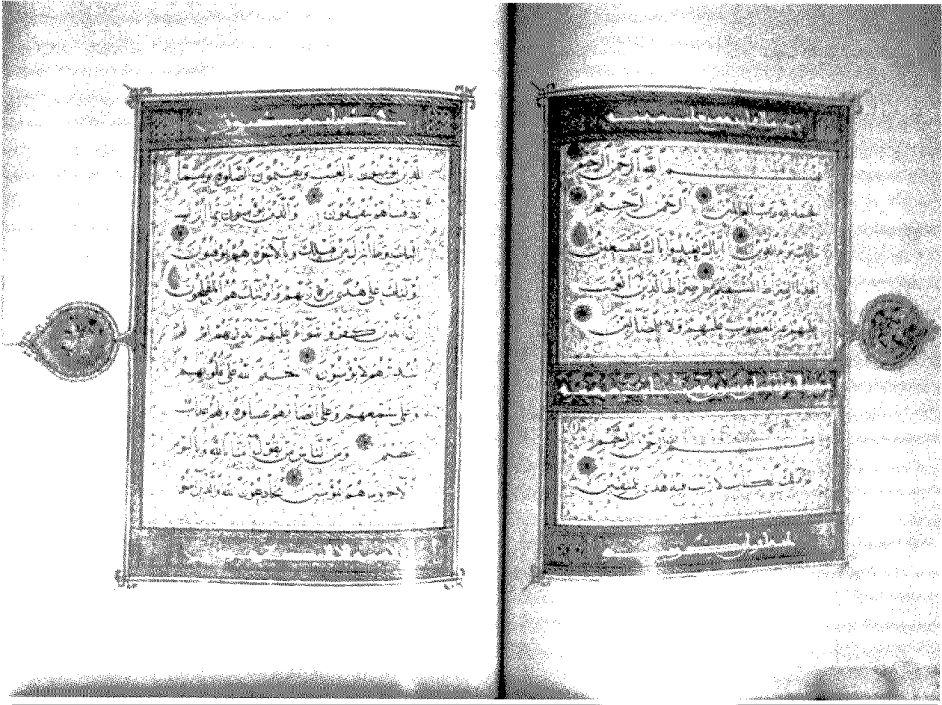 بسم الله الرحمن الرحيم
الحمد لله رب العالمين الرحمن الرحيم
مالك يوم الدين اياك نعبد واياك نستعين
اهدنا الصراط المستقيم صراط الذين انعمت
عليهم غير المغضوب عليهم ولا الضالين
بسم الله الرحمن الرحيم
الم ذلك الكتاب لا ريب فيه هدى للمتقين
الذين يؤمنون بالغيب ويقيمون الصلوة ومما
رزقناهم ينفقون والذين يؤمنون بما انزل
اليك وما انزل من قبلك وبالاخرة هم يوقنون
اولئك على هدى من ربهم واولئك هم المفلحون
ان الذين كفروا سواء عليهم ءانذرتهم ام لم
تنذرهم لا يؤمنون ختم الله على قلوبهم
وعلى سمعهم وعلى ابصارهم غشاوة ولهم عذاب
عظيم ومن الناس من يقول آمنا بالله وباليوم
الاخر وما هم بمؤمنين يخادعون الله والذين آمنوا